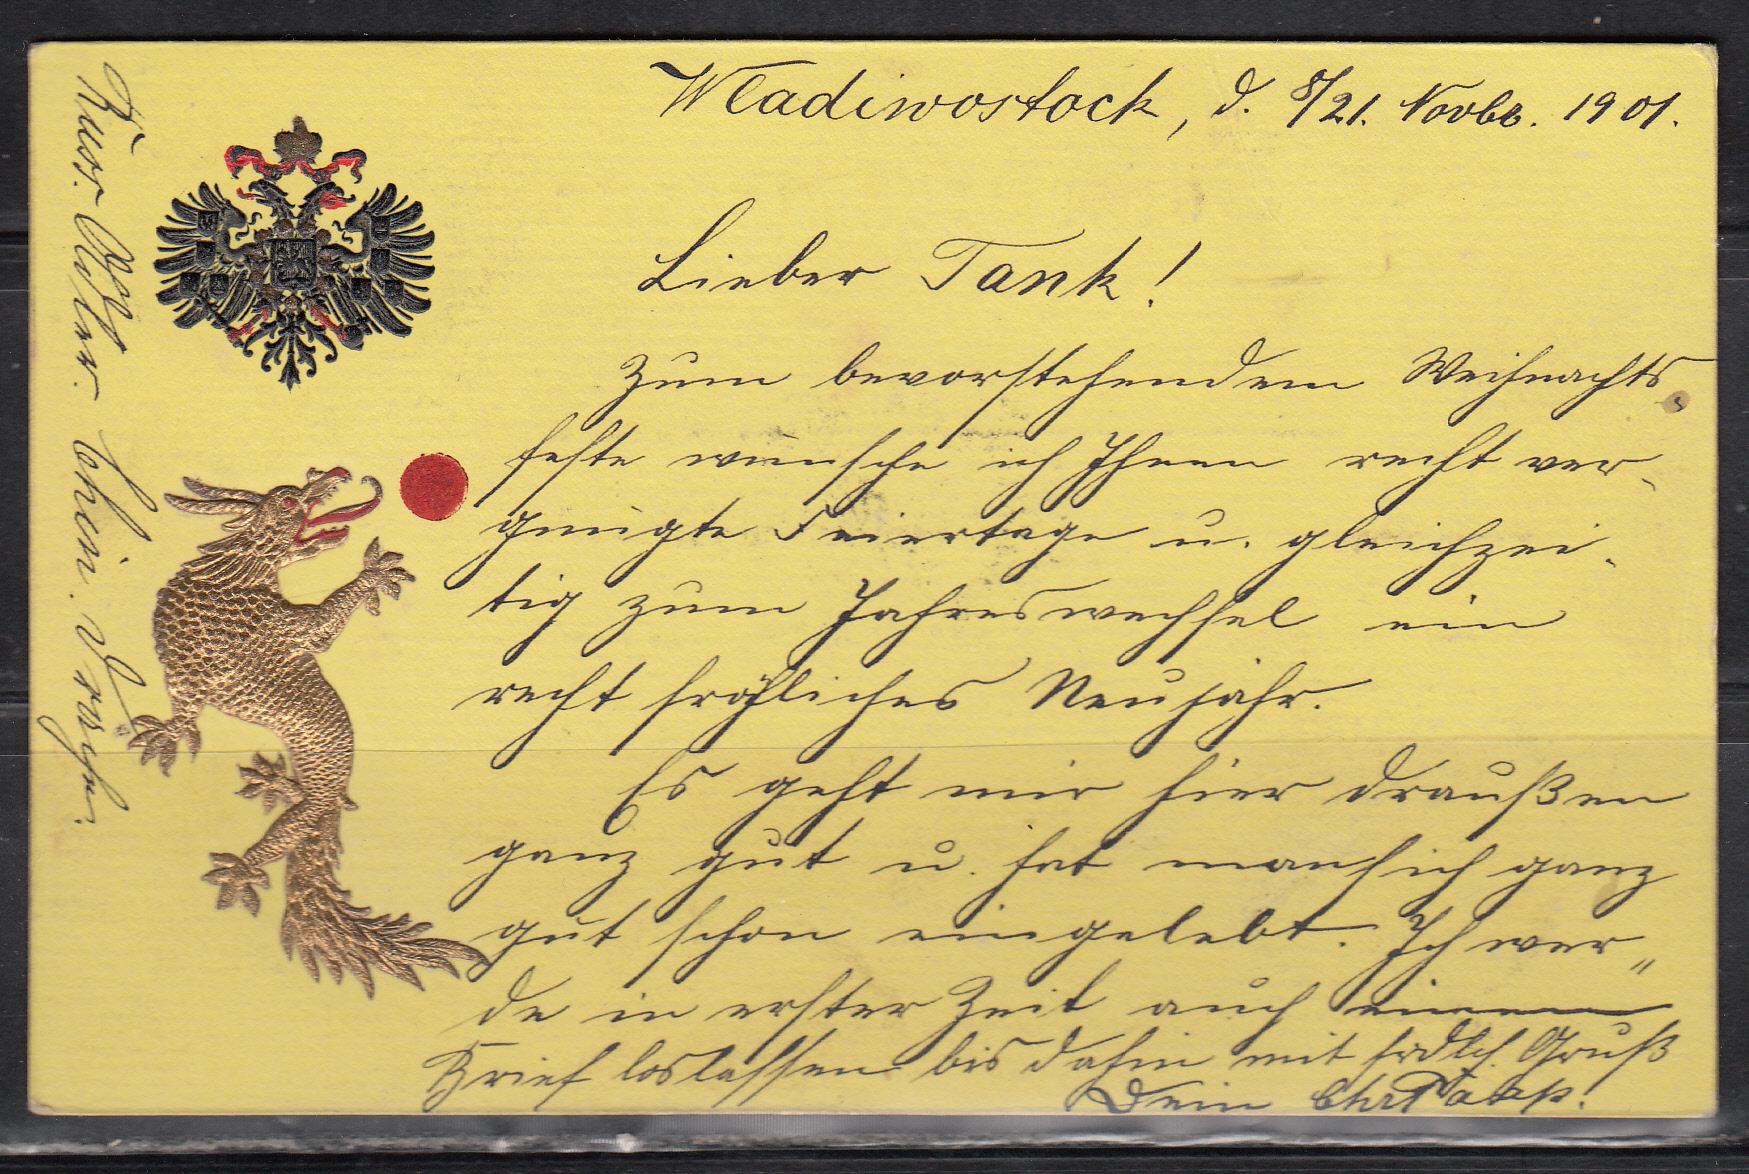 Wladiwostock, d. 8/21. Novbr. 1901.
Lieber Tank!
Zum bevorstehenden Weihnachts
feste wünsche ich Ihnen recht ver-
gnügte Feiertage u. gleichzei-
tig zum Jahreswechsel ein
recht fröhliches Neujahr.
Es geht mir hier draußen
ganz gut u. hat man sich ganz
gut schon eingelebt. Ich wer„
de in erster Zeit auch einen
Brief loslassen bis dahin mit frdlch Gruß
Dein Chr
Russ. Adler. Chin. Drache.